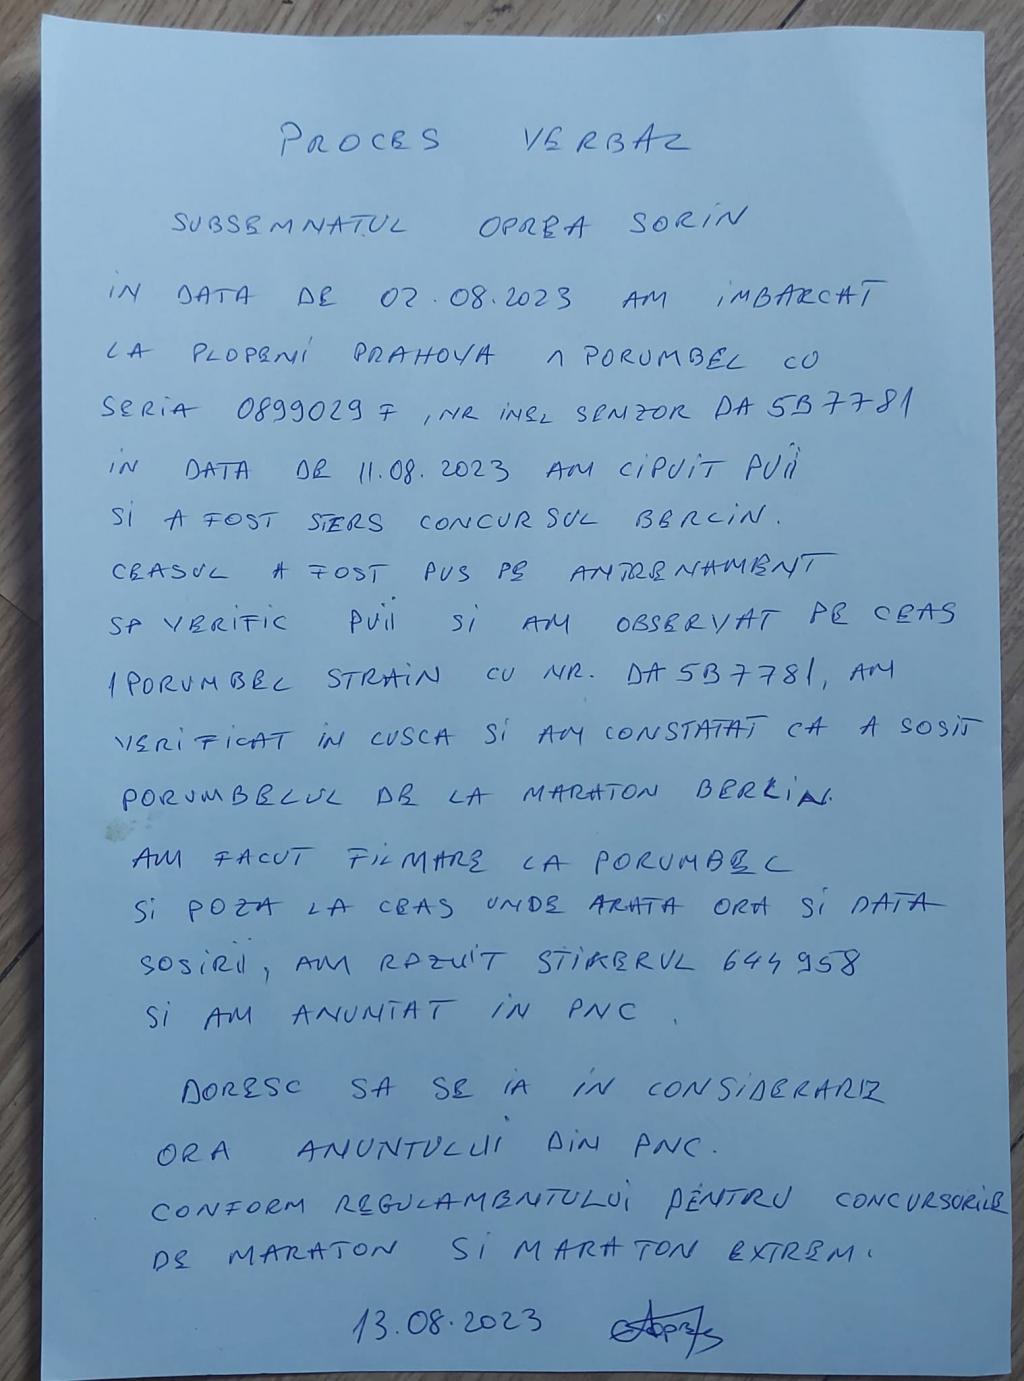 PROCES VERBAL
SUBSEMNATUL OPREA SORIN
IN DATA DE 02.08.2023 AM IMBARCAT
LA PLOPENI PRAHOVA 1 PORUMBEL CU
SERIA 08990297, NR INEL SENZOR DA 5B7781
IN DATA DE 11.08.2023 AM CIPUIT PUII
SI A FOST STERS CONCURSUL BERLIN.
CEASUL A FOST PUS PE ANTRENAMENT
SA VERIFIC PUII SI AM OBSERVAT PE CEAS
1 PORUMBEL STRAIN CU NR. DA 5B7781, AM
VERIFICAT IN CUSCA SI AM CONSTATAT CA A SOSIT
PORUMBELUL DE LA MARATON BERLIN.
AM FACUT FILMARE LA PORUMBEL
SI POZA LA CEAS UNDE ARATA ORA SI DATA
SOSIRII, AM RAZUIT STIKERUL 644958
SI AM ANUNTAT IN PNC.
DORESC SA SE IA IN CONSIDERARIE
ORA ANUNTULUI DIN PNC.
CONFORM REGULAMENTULUI PENTRU CONCURSURILE
DE MARATON SI MARATON EXTREM.
13.08.2023